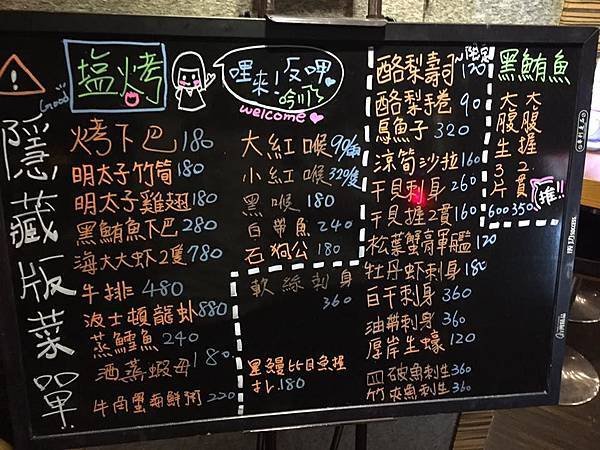 隱藏版菜單
Good
塩烤
哩來!反呷
welcome
烤下巴 180
明太子竹筒 180
明太子雞翅 180
黑鮪魚下巴 280
海大大虾2隻 780
牛排 480
波士頓龍虾 880
蒸鱈魚 240
酒蒸蝦母 180.
牛角蟹海鮮粥 220
大紅喉 90/兩
小紅喉 320/隻
黑喉 180
白帶魚 240
石狗公 180
軟絲刺身
360
黑鰻比目魚握
180
酪梨壽司 120
酪梨手捲 90
烏魚子 320
涼筍沙拉 160
干貝刺身 260
干貝握2貫 160
松葉蟹膏軍艦 120
牡丹虾刺身 180
白干刺身 360
油鄉刺身 360
厚岸生蠔 120
皿破魚刺生 360
竹夾魚刺生 360
黑鮪魚
大腹握2貫 350
大腹生3片 600
推!!